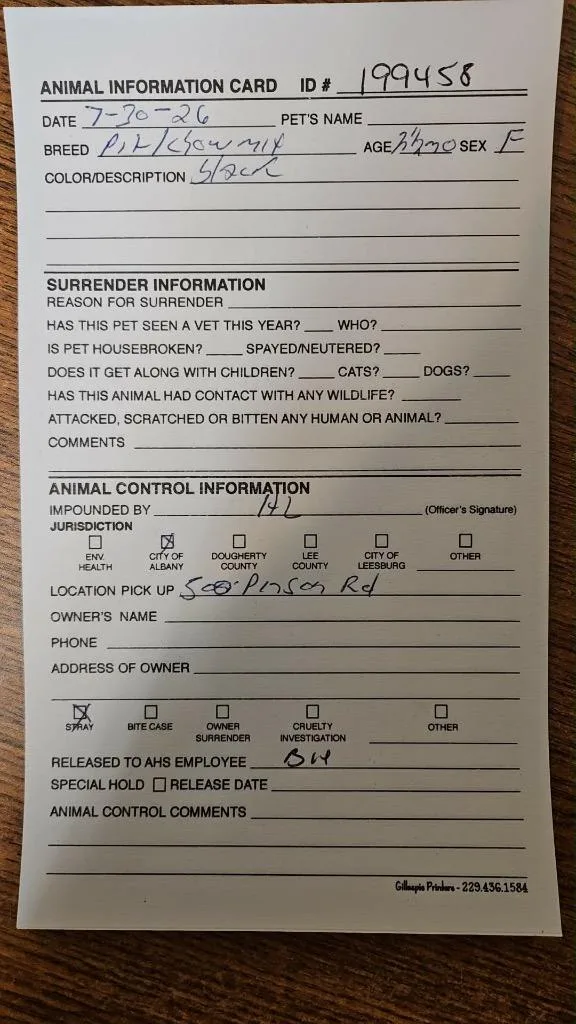 ANIMAL INFORMATION CARD ID # 199458
DATE 7-30-26 PET'S NAME
BREED Pit/chow mix AGE 3½mo SEX F
COLOR/DESCRIPTION black
SURRENDER INFORMATION
REASON FOR SURRENDER
HAS THIS PET SEEN A VET THIS YEAR? WHO?
IS PET HOUSEBROKEN? SPAYED/NEUTERED?
DOES IT GET ALONG WITH CHILDREN? CATS? DOGS?
HAS THIS ANIMAL HAD CONTACT WITH ANY WILDLIFE?
ATTACKED, SCRATCHED OR BITTEN ANY HUMAN OR ANIMAL?
COMMENTS
ANIMAL CONTROL INFORMATION
IMPOUNDED BY HL (Officer's Signature)
JURISDICTION
ENV. HEALTH CITY OF ALBANY DOUGHERTY COUNTY LEE COUNTY CITY OF LEESBURG OTHER
LOCATION PICK UP 500 Pinson Rd
OWNER'S NAME
PHONE
ADDRESS OF OWNER
STRAY BITE CASE OWNER SURRENDER CRUELTY INVESTIGATION OTHER
RELEASED TO AHS EMPLOYEE BH
SPECIAL HOLD RELEASE DATE
ANIMAL CONTROL COMMENTS
Gillespie Printers - 229.436.1584